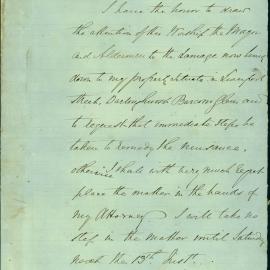 I have the honor to draw
the attention of His Worship the Mayor
and Aldermen to the damage now being
done to my property situate in Liverpool
Street, Darlinghurst Barcom Glen, and
to request that immediate steps be
taken to remedy the nuisance,
otherwise I shall with very much regret
place the matter in the hands of
my Attorney I will take no
step in the matter until Saturday
next the 13th Inst.